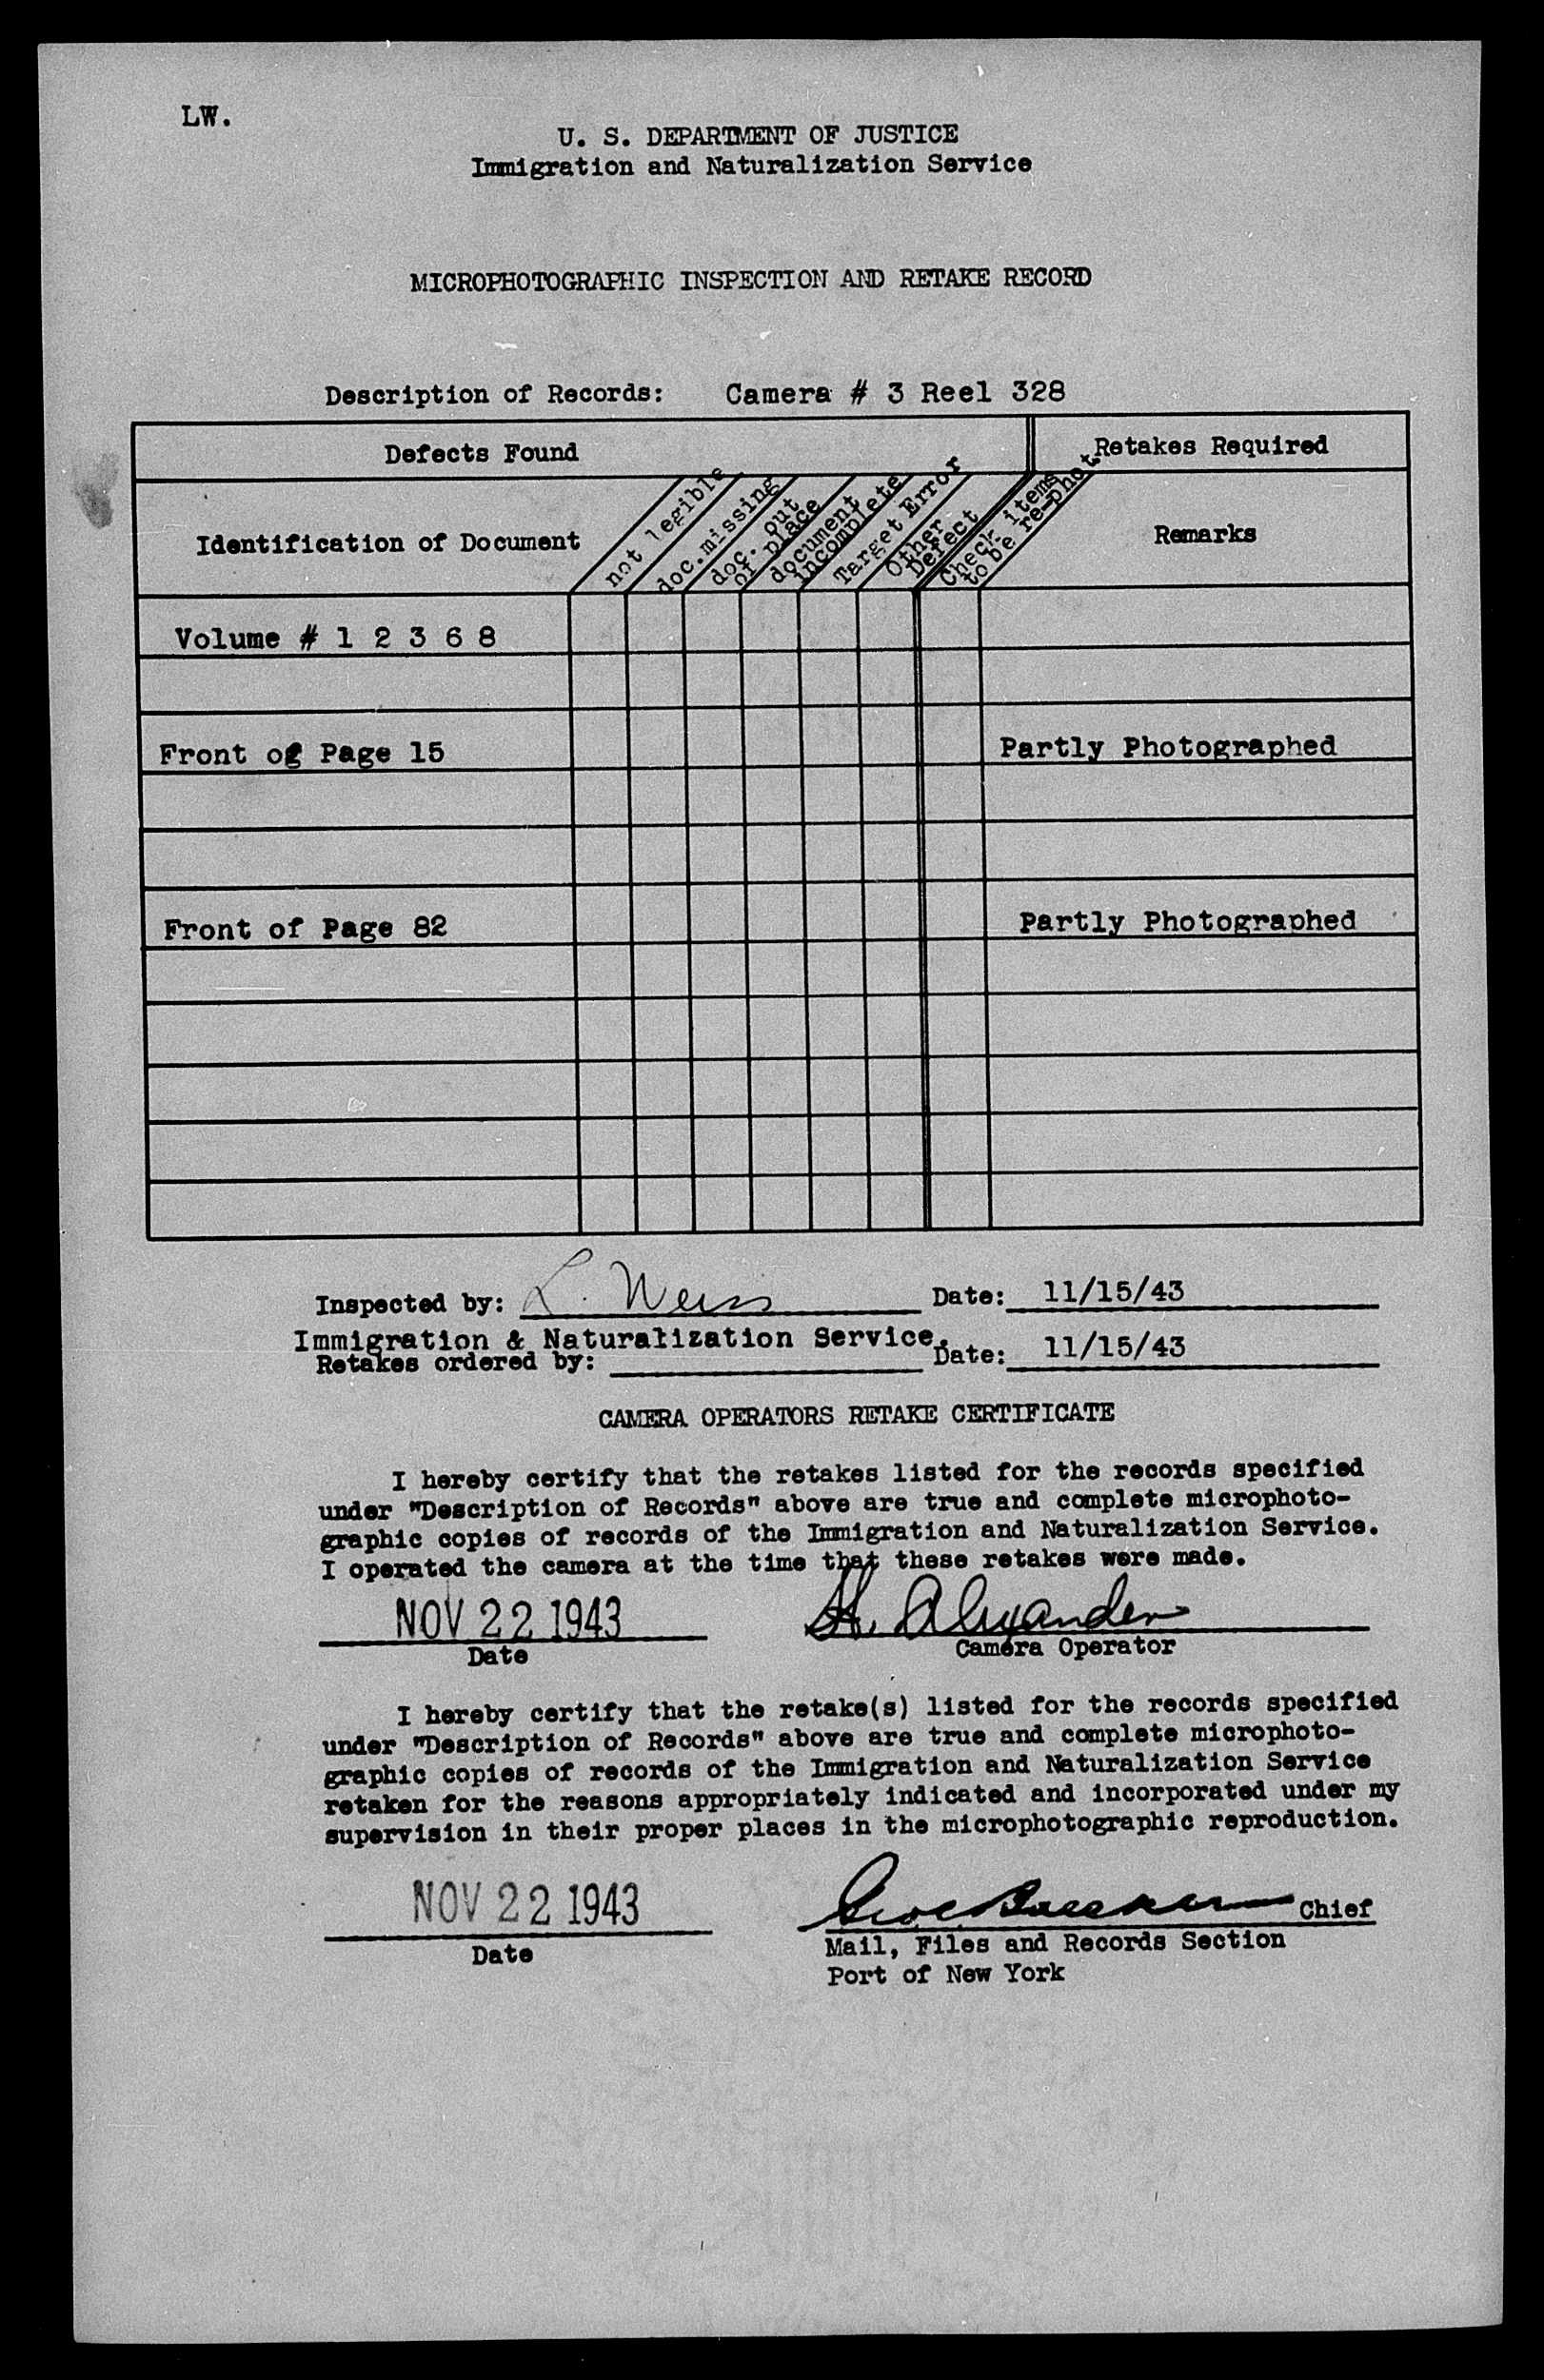 LW.
U. S. DEPARTMENT OF JUSTICE
Immigration and Naturalization Service
MICROPHOTOGRAPHIC INSPECTION AND RETAKE RECORD
Description of Records: Camera # 3 Reel 328
Defects Found
Retakes Required
Identification of Document
not legible
doc.missing
doc. out
of place
document
incomplete
Target Error
Other
Defect
Check items
to be re-phot
Remarks
Volume # 1 2 3 6 8
Front og Page 15 Partly Photographed
Front of Page 82 Partly Photographed
Inspected by: L. Weiss Date: 11/15/43
Immigration & Naturalization Service.
Retakes ordered by: Date: 11/15/43
CAMERA OPERATORS RETAKE CERTIFICATE
I hereby certify that the retakes listed for the records specified
under "Description of Records" above are true and complete microphoto-
graphic copies of records of the Immigration and Naturalization Service.
I operated the camera at the time that these retakes were made.
NOV 22 1943 H. Alexander
Date Camera Operator
I hereby certify that the retake(s) listed for the records specified
under "Description of Records" above are true and complete microphoto-
graphic copies of records of the Immigration and Naturalization Service
retaken for the reasons appropriately indicated and incorporated under my
supervision in their proper places in the microphotographic reproduction.
NOV 22 1943 Chief
Date
Mail, Files and Records Section
Port of New York